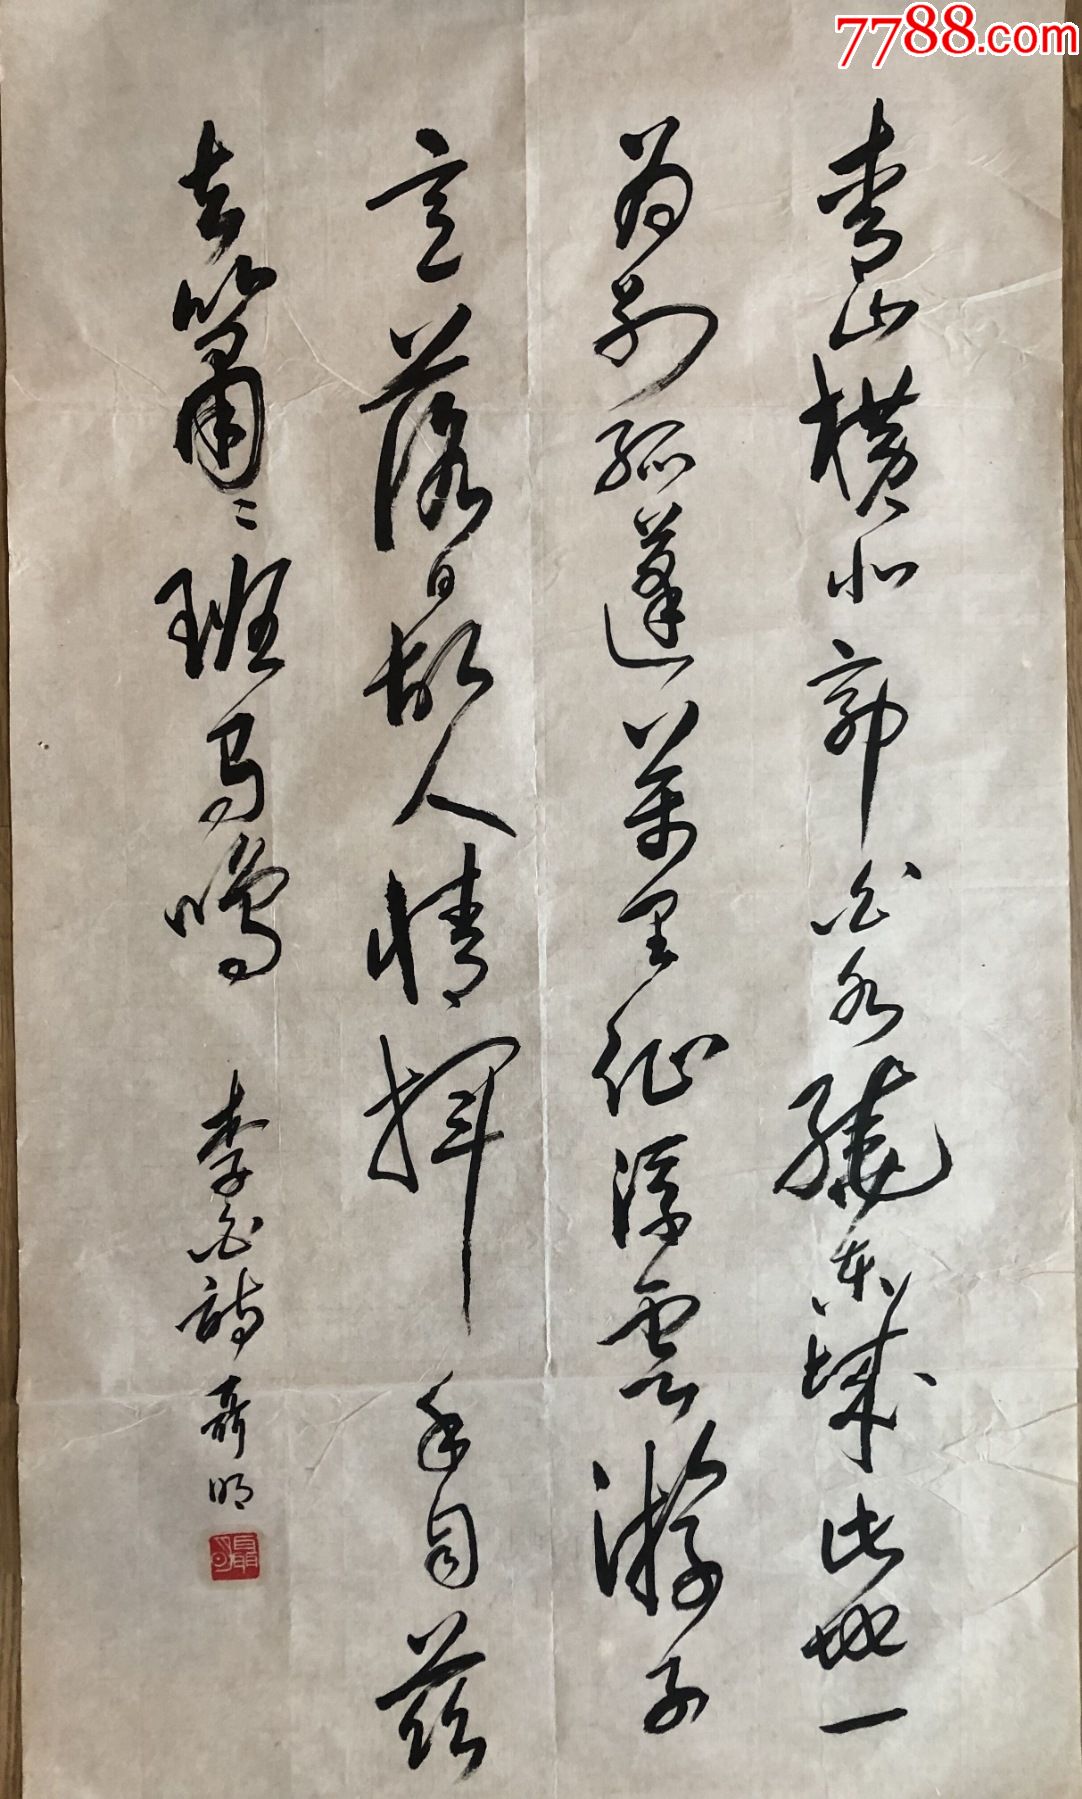 7788.com
青山横北郭白水繞东城此地一
为别孤蓬萬里征浮雲游子
意落日故人情揮手自茲
去簫〻班马鳴
李白詩 聶明